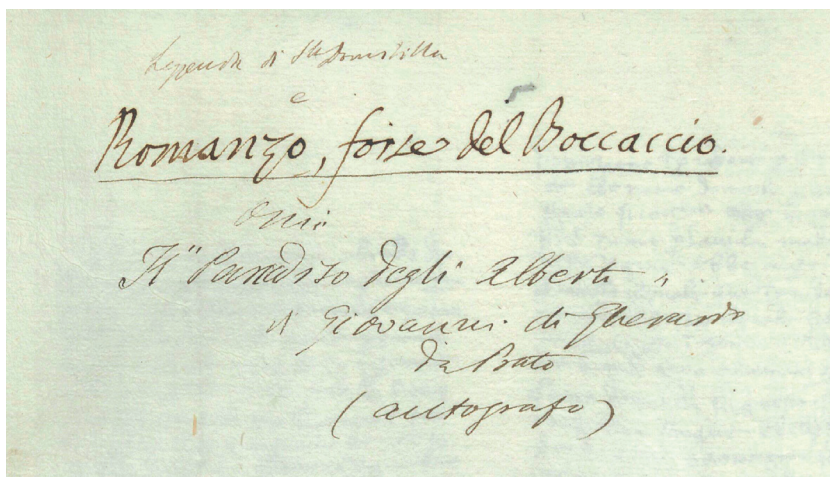 Legenda di Sta Domitilla
e
Romanzo, forse del Boccaccio.
ossia
Il "Paradiso degli Alberti"
di Giovanni di Gherardo
da Prato
(autografo)